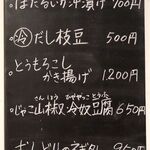 ほたるいか沖漬け 700円
㊗冷だし枝豆 500円
とうもろこし
かき揚げ 1200円
さんしょう ひややっこ とうふ
じゃこ山椒 冷奴豆腐 650円